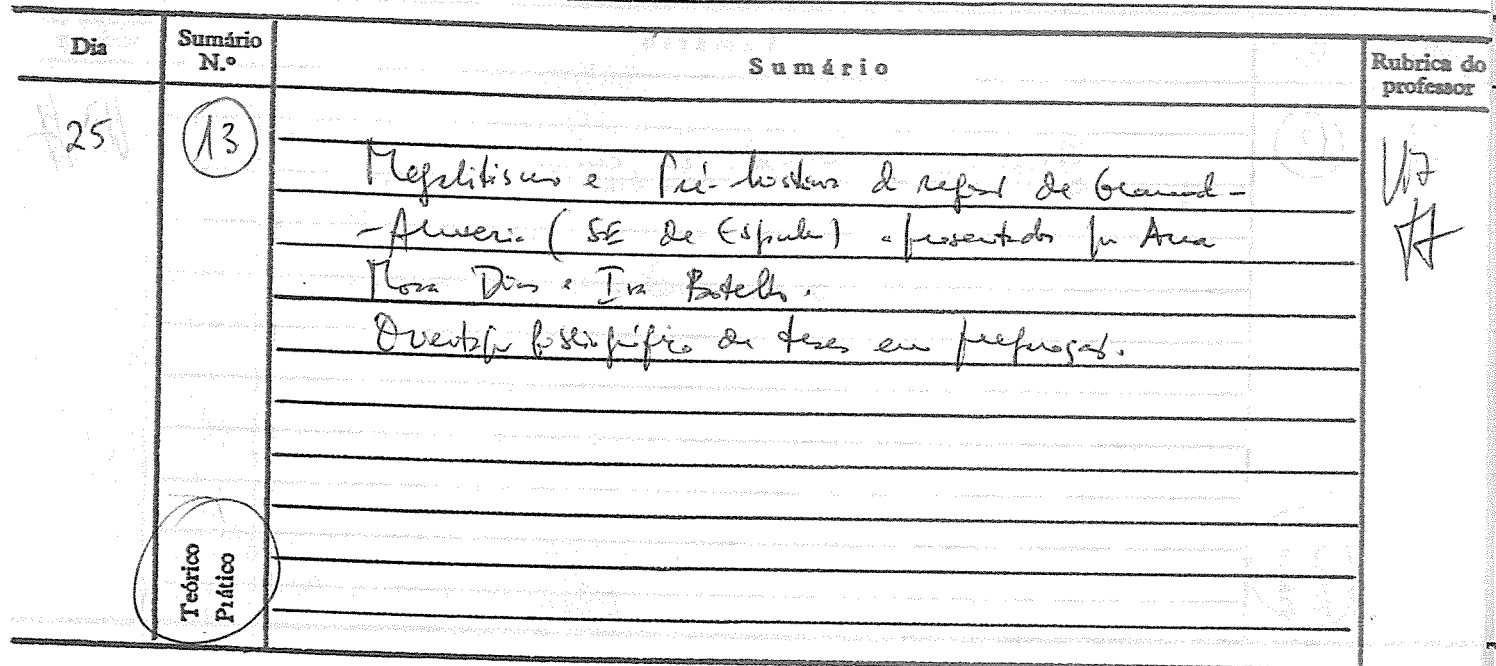 Dia
Sumário N.º
Sumário
Rubrica do professor
25
13
Megalitismo e Pré-história da região de Granada-
-Almeria (SE de Espanha) apresentado por Ana
Rosa Dias e Iva Botelho.
Orientação bibliográfica das teses em preparação.
Teórico
Prático